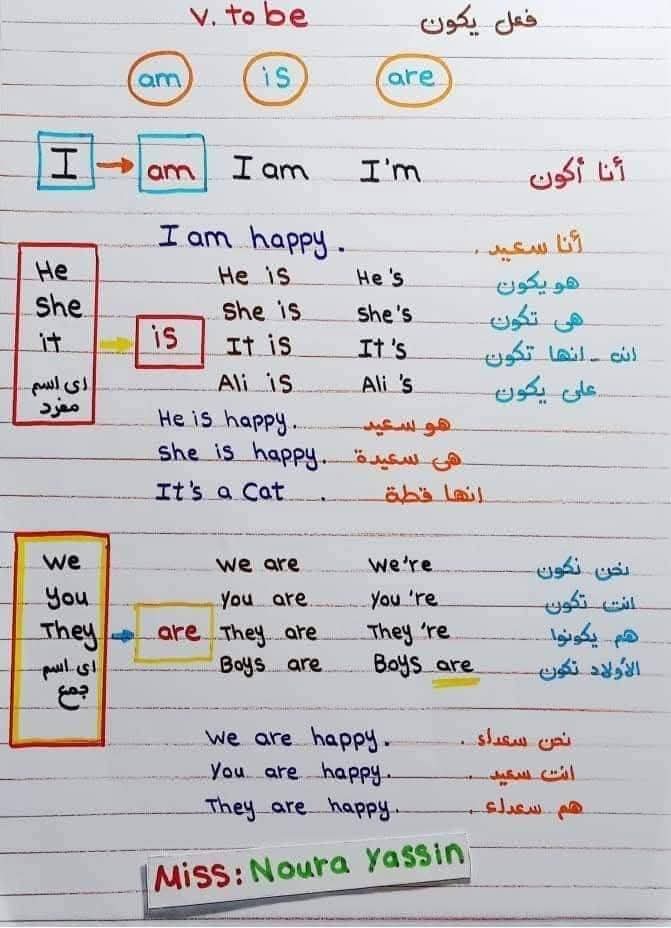 V. to be فعل يكون
am is are
I → am I am I'm أنا أكون
I am happy. أنا سعيد .
He He is He's هو يكون
She She is She's هى تكون
it → is It is It's انه - انها تكون
اى اسم مفرد Ali is Ali 's على يكون
He is happy. هو سعيد
She is happy. هى سعيدة
It's a Cat . انها قطة
We We are We're نحن نكون
You You are You 're انت تكون
They → are They are They 're هم يكونوا
اى اسم جمع Boys are Boys are الأولاد تكون
We are happy. نحن سعداء .
You are happy. انت سعيد .
They are happy. هم سعداء .
Miss: Noura Yassin